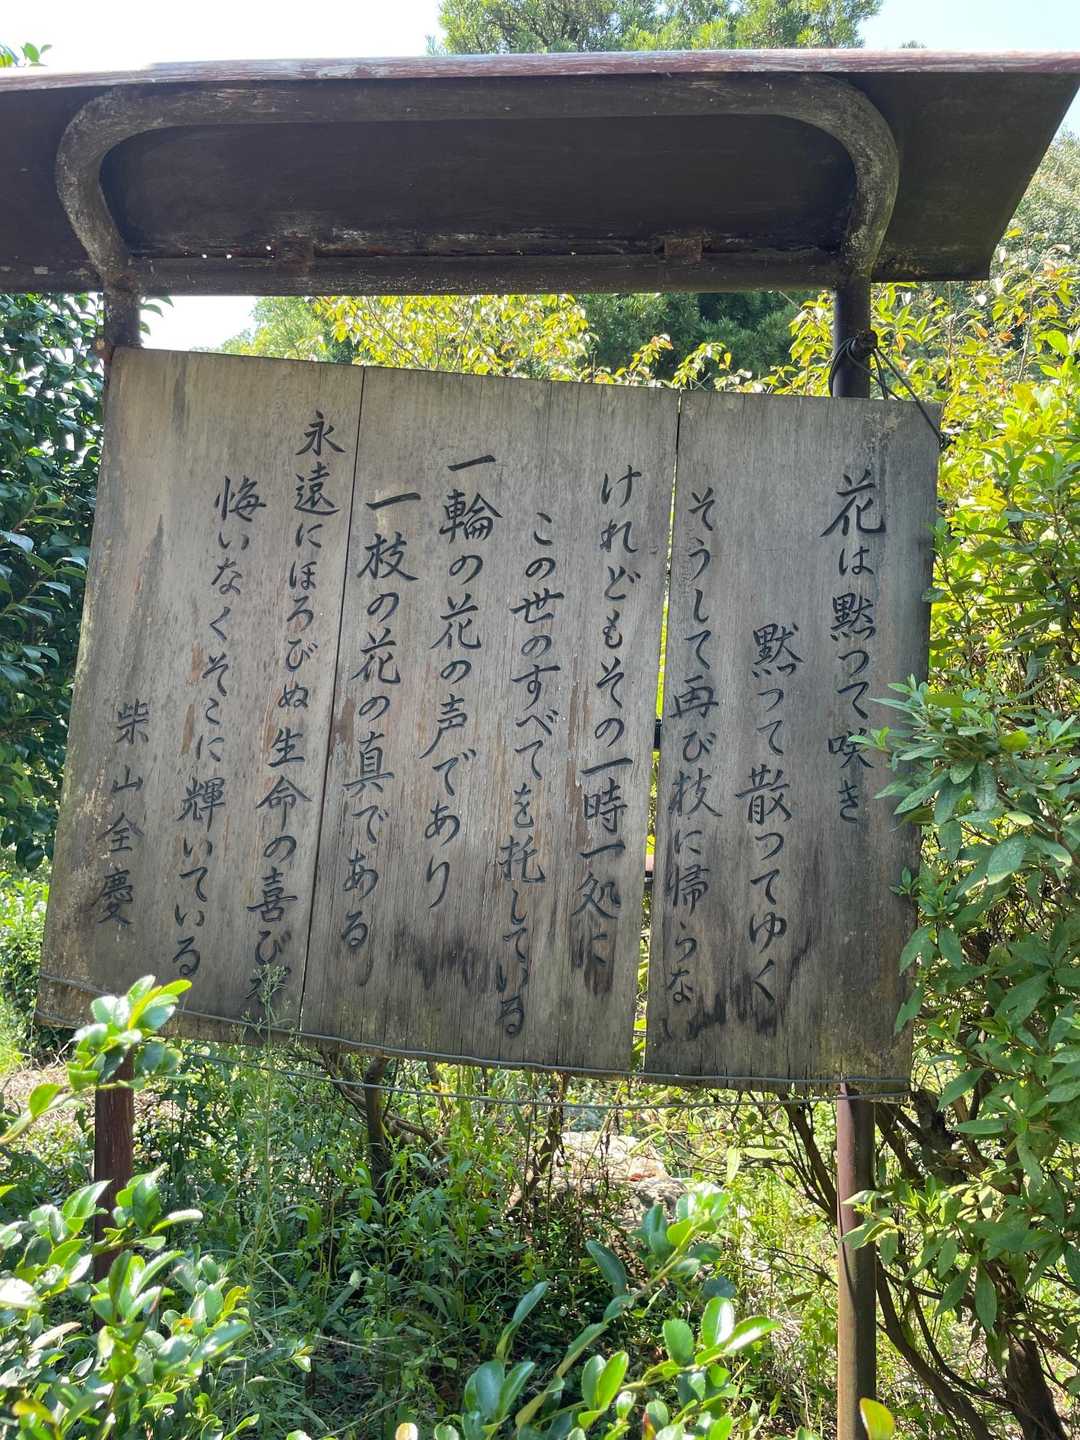 花は黙って咲き
黙って散ってゆく
そうして再び枝に帰らない
けれどもその一時一処に
この世のすべてを托している
一輪の花の声であり
一枝の花の真である
永遠にほろびぬ生命の喜びが
悔いなくそこに輝いている
柴山全慶